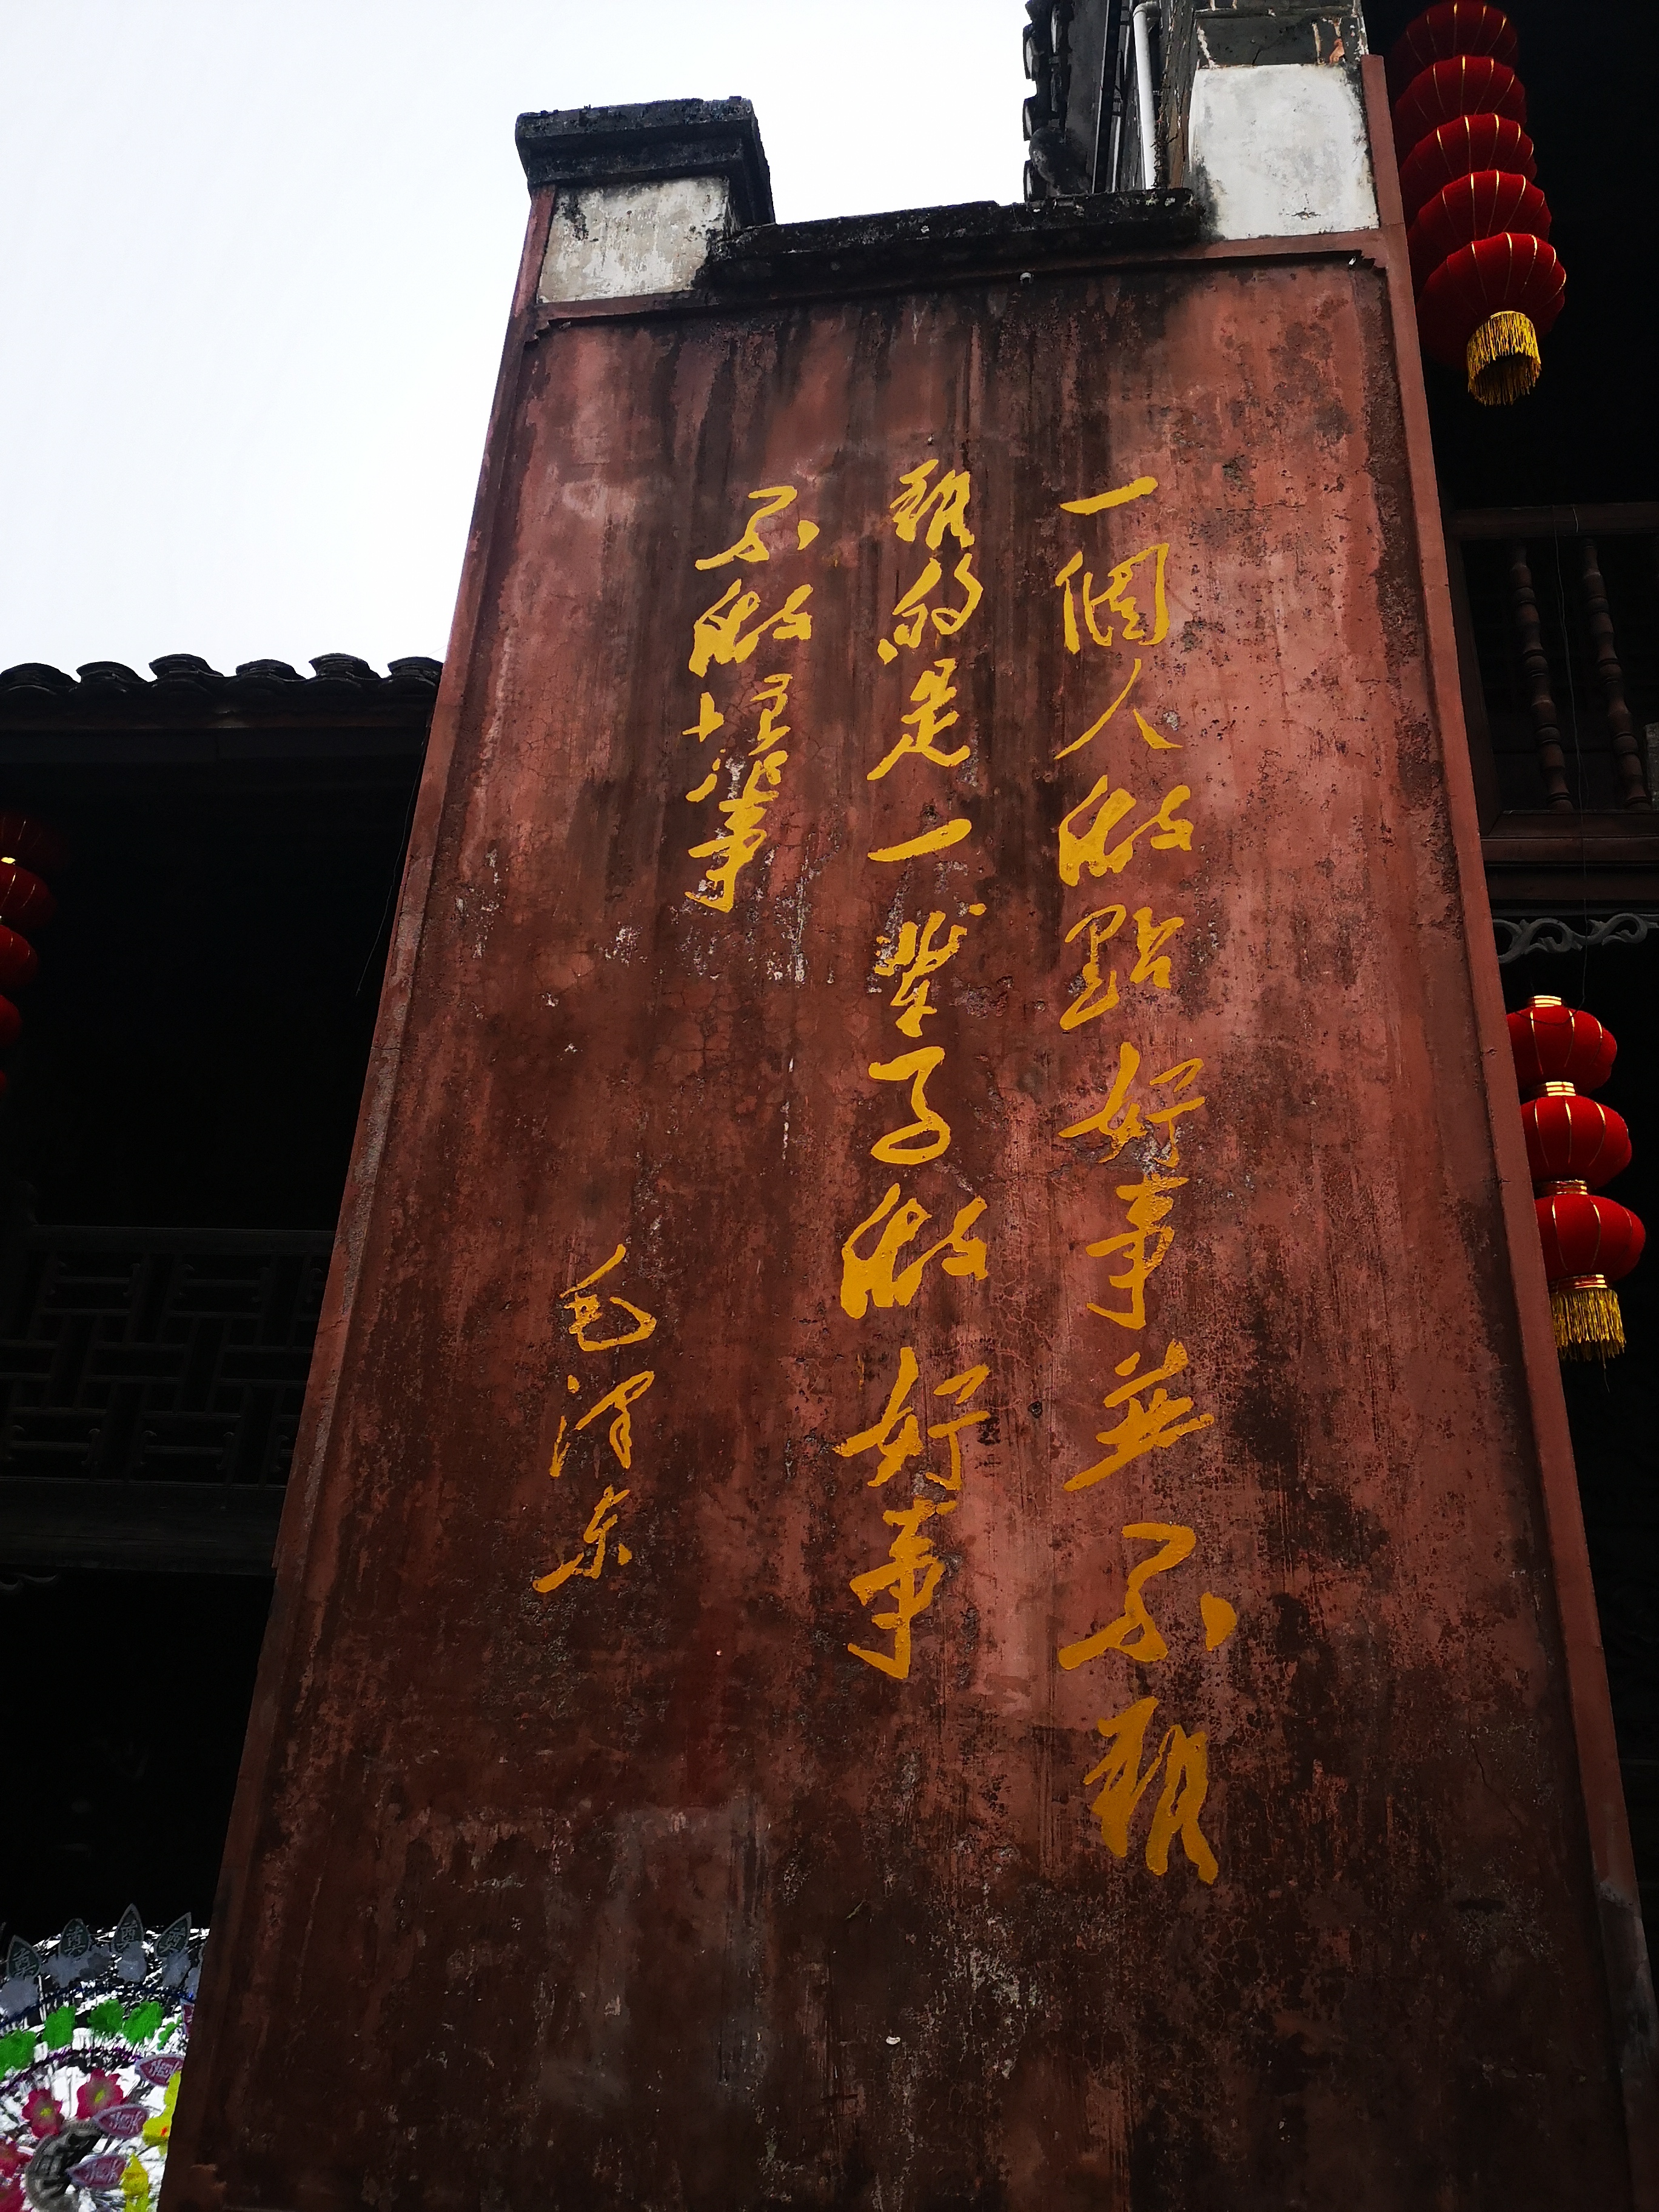 一個人做點好事並不難
難的是一輩子做好事
不做壞事
毛泽东